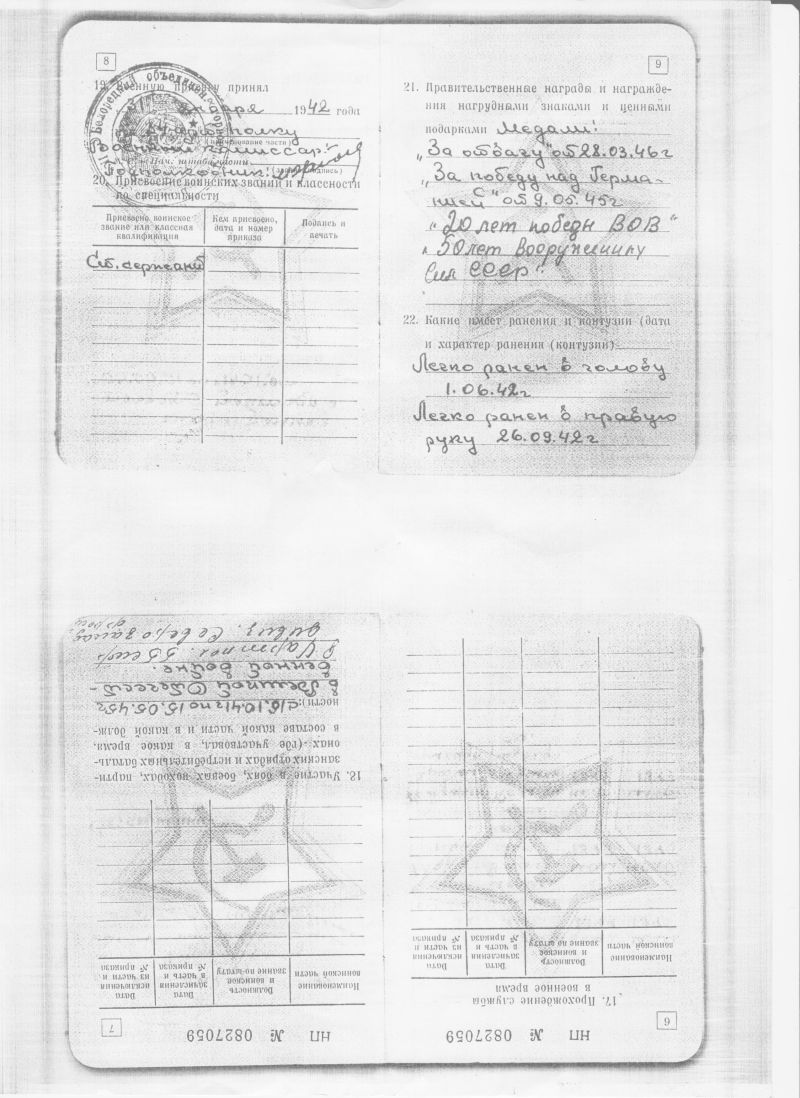 8
19. Военную присягу принял
1942 года
(наименование части)
Военный комиссар:
Нач. штаба части
Подполковник:
20. Присвоение воинских званий и классности
по специальности
Присвоено воинское звание или классная квалификация
Кем присвоено, дата и номер приказа
Подпись и печать
Ст. сержант
9
21. Правительственные награды и награжде-
ния нагрудными знаками и ценными
подарками Медали:
„За отвагу" от 28.03.46г
„За победу над Герма-
нией" от 9.05.45г
„20 лет победы ВОВ"
50 лет Вооружённых
Сил СССР".
22. Какие имеет ранения и контузии (дата
и характер ранения (контузии)
Легко ранен в голову
1.06.42г
Легко ранен в правую
руку 26.09.42г
6
НП № 0827059
17. Прохождение службы
в военное время
Наименование воинской части
Должность и воинское звание по штату
Дата зачисления в часть и № приказа
Дата исключения из части и № приказа
7
НП № 0827059
Наименование воинской части
Должность и воинское звание по штату
Дата зачисления в часть и № приказа
Дата исключения из части и № приказа
18. Участие в боях, боевых походах, парти-
занских отрядах и истребительных баталь-
онах (где участвовал, в какое время,
в составе какой части и в какой долж-
ности): с 15.10.41г по 15.05.45г
в Великой Отечест-
венной войне.